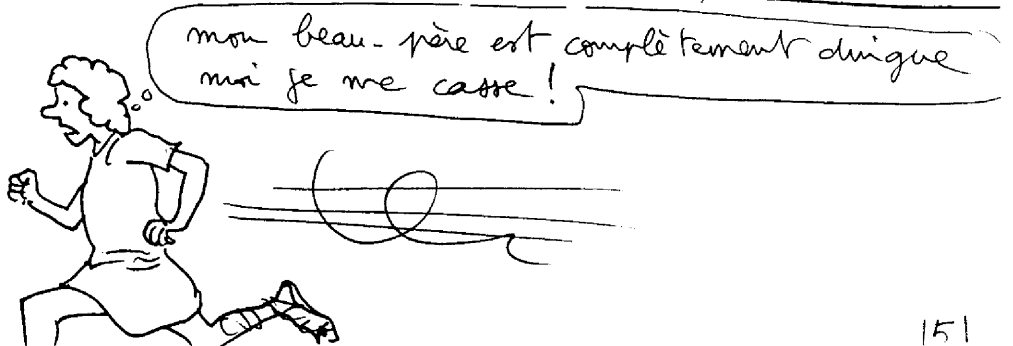 mon beau-père est complètement dingue
moi je me casse !
151